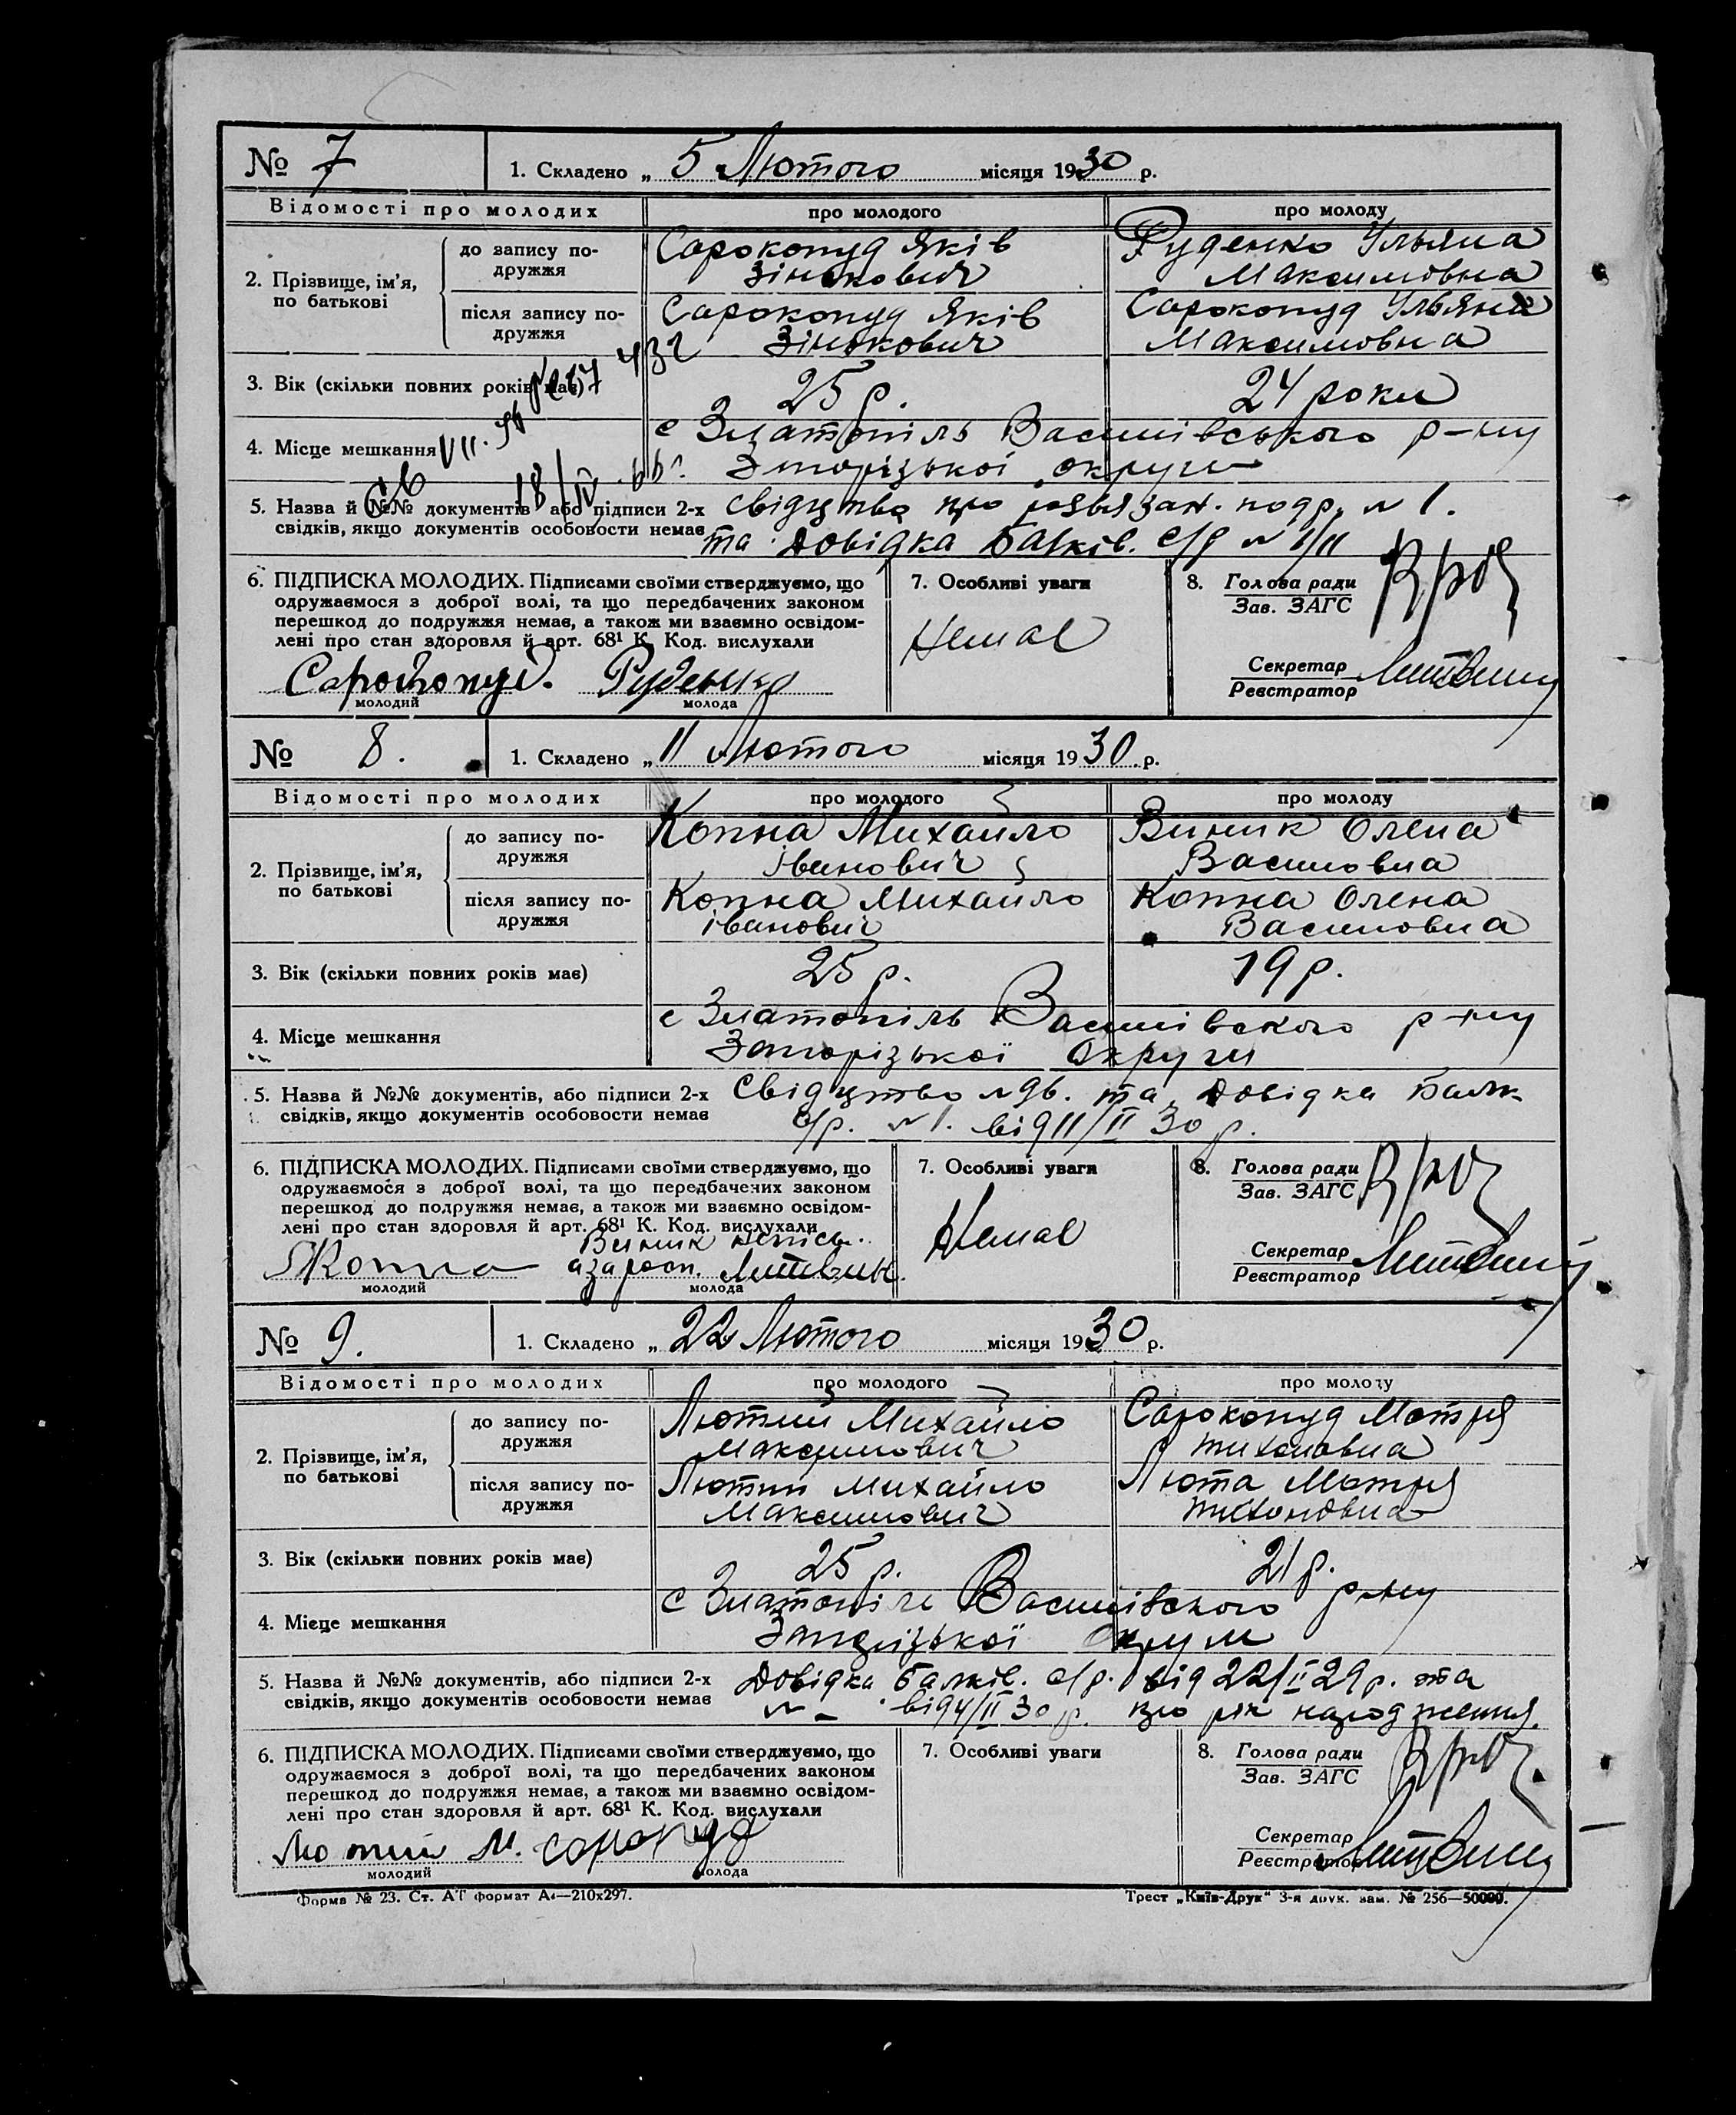 № 7 1. Складено „ 5 Лютого місяця 1930 р.
Відомості про молодих про молодого про молоду
2. Прізвище, ім'я, по батькові
до запису подружжя
Сарокопуд Яків Руденко Ульяна
Зінькович Максимовна
після запису подружжя
Сарокопуд Яків Сарокопуд Ульяна
Зінькович Максимовна
3. Вік (скільки повних років має) 25 р. 24 роки
4. Місце мешкання с Златопіль Василівського р-ну
Запорізької округи
5. Назва й №№ документів, або підписи 2-х свідцтво про розвязан. подр. № 1.
свідків, якщо документів особовости немає та довідка Балків. с/р №
6. ПІДПИСКА МОЛОДИХ. Підписами своїми стверджуємо, що
одружаємося з доброї волі, та що передбачених законом
перешкод до подружжя немає, а також ми взаємно освідом-
лені про стан здоровля й арт. 68¹ К. Код. вислухали
Сарокопуд. Руденко
молодий молода
7. Особливі уваги
Немає
8. Голова ради
Зав. ЗАГС
Секретар
Реєстратор Литвин
№ 8. 1. Складено „ 11 Лютого місяця 1930 р.
Відомості про молодих про молодого про молоду
2. Прізвище, ім'я, по батькові
до запису подружжя
Копна Михайло Виник Олена
Іванович Василовна
після запису подружжя
Копна Михайло Копна Олена
Іванович Василовна
3. Вік (скільки повних років має) 25 р. 19 р.
4. Місце мешкання с Златопіль Василівского р-ну
Запорізької Округи
5. Назва й №№ документів, або підписи 2-х Свідцтво та довідка Балк.
свідків, якщо документів особовости немає с/р. № 1. від 11/II 30 р.
6. ПІДПИСКА МОЛОДИХ. Підписами своїми стверджуємо, що
одружаємося з доброї волі, та що передбачених законом
перешкод до подружжя немає, а також ми взаємно освідом-
лені про стан здоровля й арт. 68¹ К. Код. вислухали
Виник непись.
Копна Литвин.
молодий молода
7. Особливі уваги
Немає
8. Голова ради
Зав. ЗАГС
Секретар
Реєстратор Литвин
№ 9. 1. Складено „ 22 Лютого місяця 1930 р.
Відомості про молодих про молодого про молоду
2. Прізвище, ім'я, по батькові
до запису подружжя
Лютий Михайло Сарокопуд Мотря
Максимович Тихоновна
після запису подружжя
Лютий Михайло Люта Мотря
Максимович Тихоновна
3. Вік (скільки повних років має) 25 р. 21 р.
4. Місце мешкання с Златопіль Василівского р-ну
Запорізької Округи
5. Назва й №№ документів, або підписи 2-х Довідка Балків. с/р. від 22/II 29 р. та
свідків, якщо документів особовости немає № – від 4/II 30 р. про рік народження.
6. ПІДПИСКА МОЛОДИХ. Підписами своїми стверджуємо, що
одружаємося з доброї волі, та що передбачених законом
перешкод до подружжя немає, а також ми взаємно освідом-
лені про стан здоровля й арт. 68¹ К. Код. вислухали
Лютий М.
молодий молода
7. Особливі уваги
8. Голова ради
Зав. ЗАГС
Секретар
Реєстратор Литвин
Форма № 23. Ст. АТ формат А4—210х297. Трест „Київ-Друк“ 3-я друк. зам. № 256—50000.